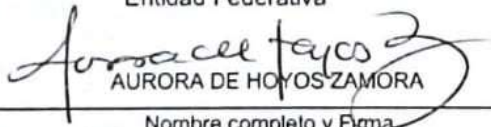 Entidad Federativa
AURORA DE HOYOS ZAMORA
Nombre completo y Firma